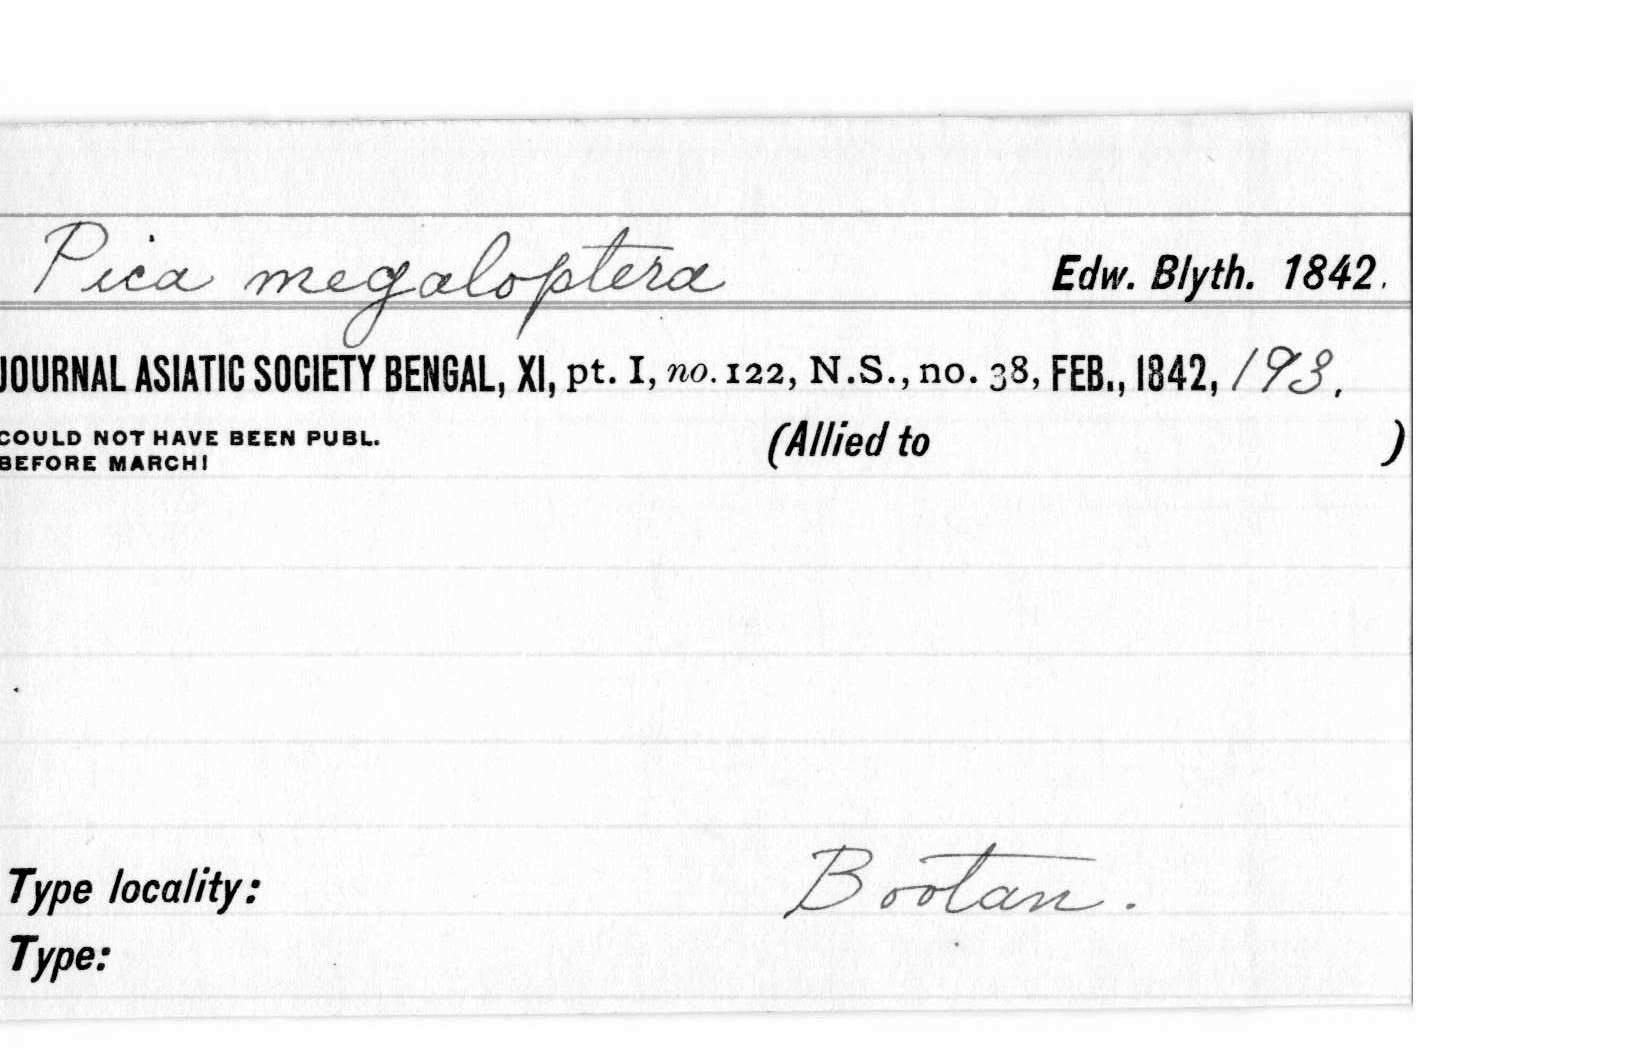 Pica megaloptera Edw. Blyth. 1842.
JOURNAL ASIATIC SOCIETY BENGAL, XI, pt. I, no. 122, N.S., no. 38, FEB., 1842, 193.
COULD NOT HAVE BEEN PUBL. (Allied to )
BEFORE MARCH!
Type locality: Bootan.
Type: